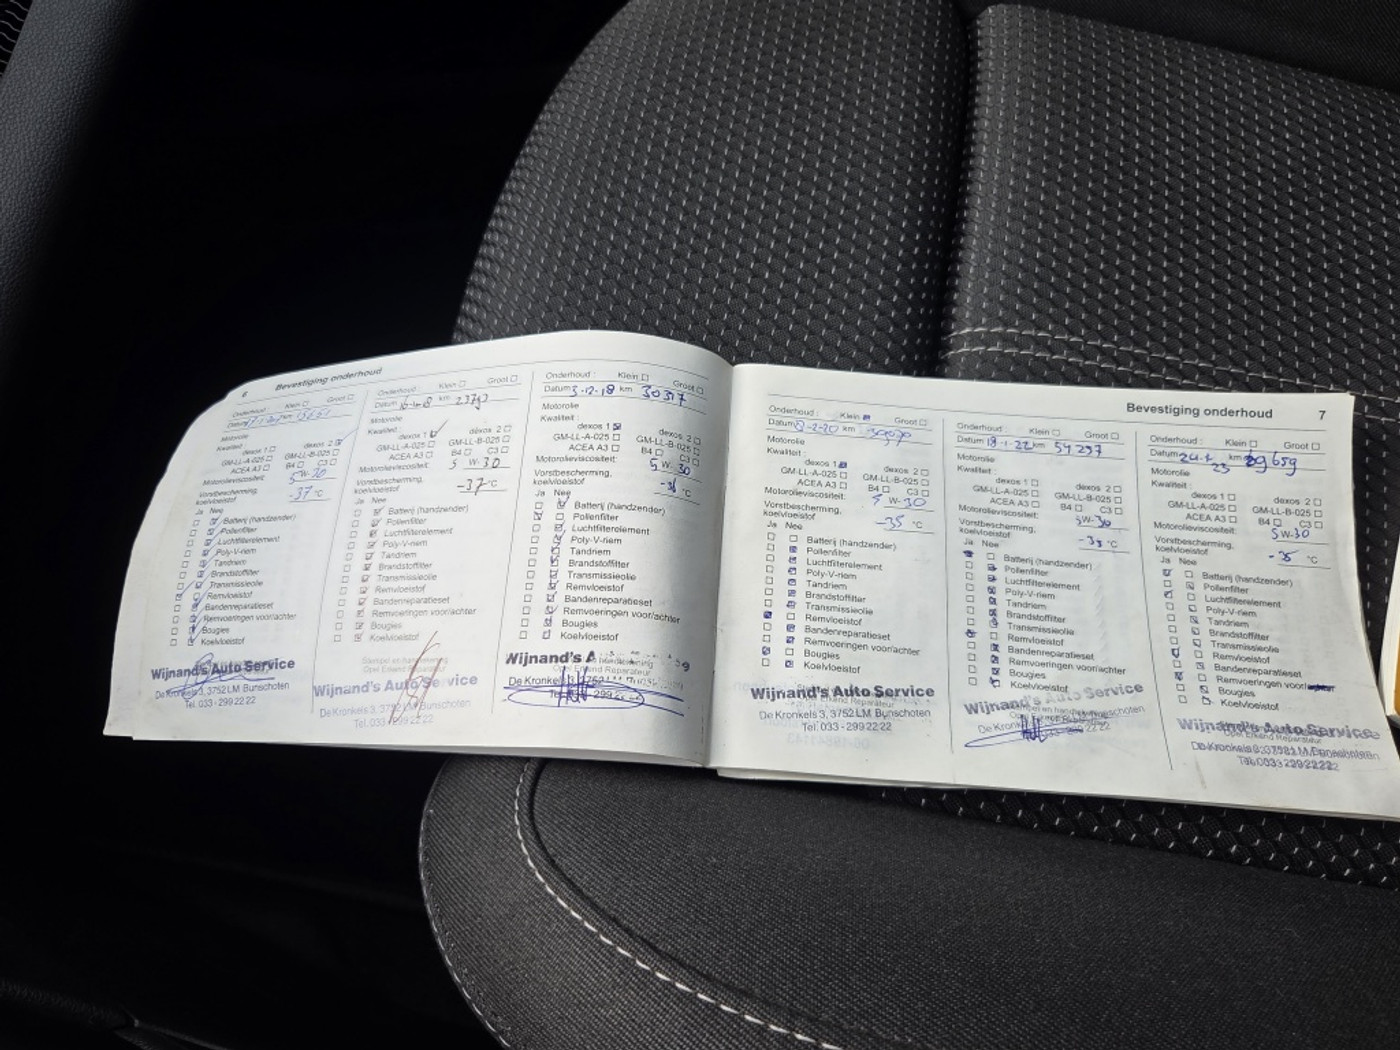 6 Bevestiging onderhoud
Onderhoud : Klein Groot
Datum km
Motorolie
Kwaliteit :
dexos 1 dexos 2
GM-LL-A-025 GM-LL-B-025
ACEA A3 B4 C3
Motorolieviscositeit: 5 W-30
Vorstbescherming,
koelvloeistof -37 °C
Ja Nee
Batterij (handzender)
Pollenfilter
Luchtfilterelement
Poly-V-riem
Tandriem
Brandstoffilter
Transmissieolie
Remvloeistof
Bandenreparatieset
Remvoeringen voor/achter
Bougies
Koelvloeistof
Wijnand's Auto Service
De Kronkels 3, 3752 LM Bunschoten
Tel. 033 - 299 22 22
Onderhoud : Klein Groot
Datum km
Motorolie
Kwaliteit :
dexos 1 dexos 2
GM-LL-A-025 GM-LL-B-025
ACEA A3 B4 C3
Motorolieviscositeit: 5 W-30
Vorstbescherming,
koelvloeistof -37 °C
Ja Nee
Batterij (handzender)
Pollenfilter
Luchtfilterelement
Poly-V-riem
Tandriem
Brandstoffilter
Transmissieolie
Remvloeistof
Bandenreparatieset
Remvoeringen voor/achter
Bougies
Koelvloeistof
Stempel en handtekening
Opel Erkend Reparateur
Wijnand's Auto Service
De Kronkels 3, 3752 LM Bunschoten
Tel. 033 - 299 22 22
Onderhoud : Klein Groot
Datum 3-12-18 km 30317
Motorolie
Kwaliteit :
dexos 1 dexos 2
GM-LL-A-025 GM-LL-B-025
ACEA A3 B4 C3
Motorolieviscositeit: 5 W-30
Vorstbescherming,
koelvloeistof °C
Ja Nee
Batterij (handzender)
Pollenfilter
Luchtfilterelement
Poly-V-riem
Tandriem
Brandstoffilter
Transmissieolie
Remvloeistof
Bandenreparatieset
Remvoeringen voor/achter
Bougies
Koelvloeistof
Wijnand's A
Opel Erkend Reparateur
De Kronkels 3, 3752 LM
Tel. 299 22
Bevestiging onderhoud 7
Onderhoud : Klein Groot
Datum km
Motorolie
Kwaliteit :
dexos 1 dexos 2
GM-LL-A-025 GM-LL-B-025
ACEA A3 B4 C3
Motorolieviscositeit: 5 W-30
Vorstbescherming,
koelvloeistof -35 °C
Ja Nee
Batterij (handzender)
Pollenfilter
Luchtfilterelement
Poly-V-riem
Tandriem
Brandstoffilter
Transmissieolie
Remvloeistof
Bandenreparatieset
Remvoeringen voor/achter
Bougies
Koelvloeistof
Wijnand's Auto Service
De Kronkels 3, 3752 LM Bunschoten
Tel. 033 - 299 22 22
Onderhoud : Klein Groot
Datum 18-1-22 km 54297
Motorolie
Kwaliteit :
dexos 1 dexos 2
GM-LL-A-025 GM-LL-B-025
ACEA A3 B4 C3
Motorolieviscositeit: 5W-30
Vorstbescherming,
koelvloeistof °C
Ja Nee
Batterij (handzender)
Pollenfilter
Luchtfilterelement
Poly-V-riem
Tandriem
Brandstoffilter
Transmissieolie
Remvloeistof
Bandenreparatieset
Remvoeringen voor/achter
Bougies
Koelvloeistof
Wijnand's Auto Service
De Kronkels 3, Bunschoten
Onderhoud : Klein Groot
Datum km
Motorolie
Kwaliteit :
dexos 1 dexos 2
GM-LL-A-025 GM-LL-B-025
ACEA A3 B4 C3
Motorolieviscositeit: 5W-30
Vorstbescherming,
koelvloeistof °C
Ja Nee
Batterij (handzender)
Pollenfilter
Luchtfilterelement
Poly-V-riem
Tandriem
Brandstoffilter
Transmissieolie
Remvloeistof
Bandenreparatieset
Remvoeringen voor/
Bougies
Koelvloeistof
Wijnand's Auto Service
Opel Erkend Reparateur